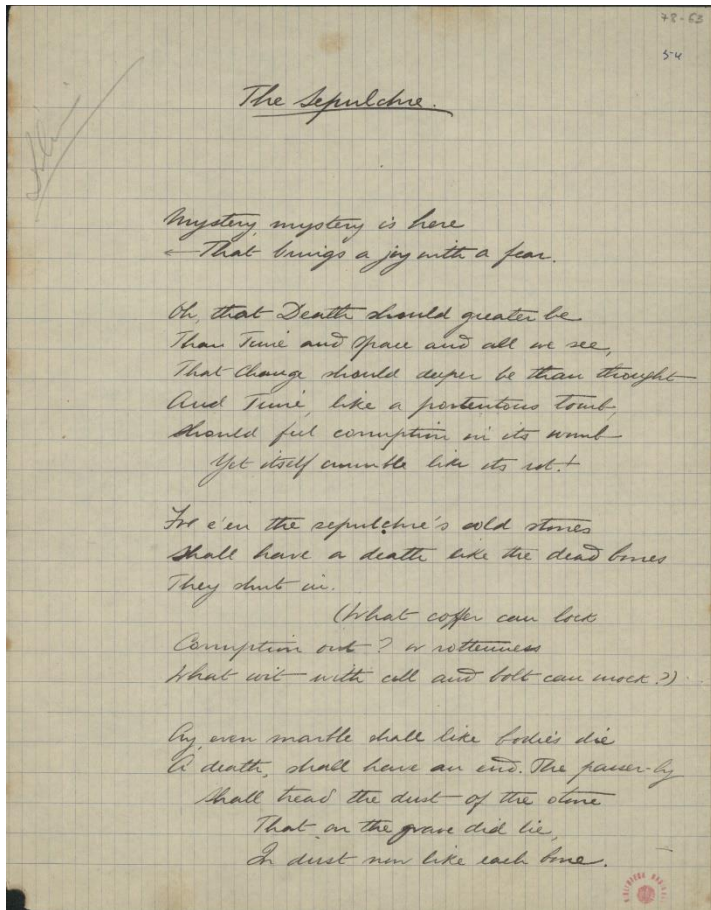 78-53
54
The Sepulchre.
Mystery, mystery is here
That brings a joy with a fear.
Oh, that Death should greater be
Than Time and Space and all we see,
That Change should deeper be than thought
And Time, like a portentous tomb,
Should feel corruption in its womb
Yet itself crumble like its rot!
For e'en the sepulchre's cold stones
Shall have a death like the dead bones
They shut in.
(What coffer can lock
Corruption out? or rottenness
What wit with cell and bolt can mock?)
Ay, even marble shall like bodies die
A death, shall have an end. The passer-by
Shall tread the dust of the stone
That on the grave did lie,
In dust now like each bone.